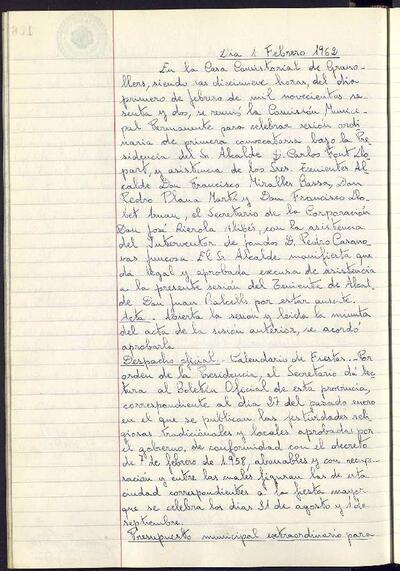 Dia 1 Febrero 1962
En la Casa Consistorial de Grano-
llers, siendo las diecinueve horas, del dia
primero de febrero de mil novecientos se-
senta y dos, se reunió la Comisión Munici-
pal Permanente para celebrar sesión ordi-
naria de primera convocatoria bajo la Pre-
sidencia del Sr. Alcalde D. Carlos Font Llo-
part, y asistencia de los Sres. Tenientes Al-
calde Don Francisco Miralles Bassa, Don
Pedro Plana Martí y Don Francisco Llo-
bet Arnau, el Secretario de la Corporación
Don José Rierola, con la asistencia
del Interventor de fondos D. Pedro Casano-
vas. El Sr. Alcalde manifiesta que
dá legal y aprobada excusa de asistencia
a la presente sesión del Teniente de Alcal-
de Don Juan Balcells por estar ausente.
Acta. Abierta la sesión y leida la minuta
del acta de la sesión anterior, se acordó
aprobarla
Despacho oficial. Calendario de Fiestas. - Por
orden de la Presidencia, el Secretario dá lec-
tura al Boletín Oficial de esta provincia,
correspondiente al dia 27 del pasado enero
en el que se publican las festividades reli-
giosas tradicionales y locales aprobadas por
el gobierno, de conformidad con el decreto
de 7 de febrero de 1958, abonables y con recupe-
ración y entre las cuales figuran las de esta
ciudad correspondientes a la fiesta mayor
que se celebra los dias 31 de agosto y 1 de
septiembre.
Presupuesto municipal extraordinario para